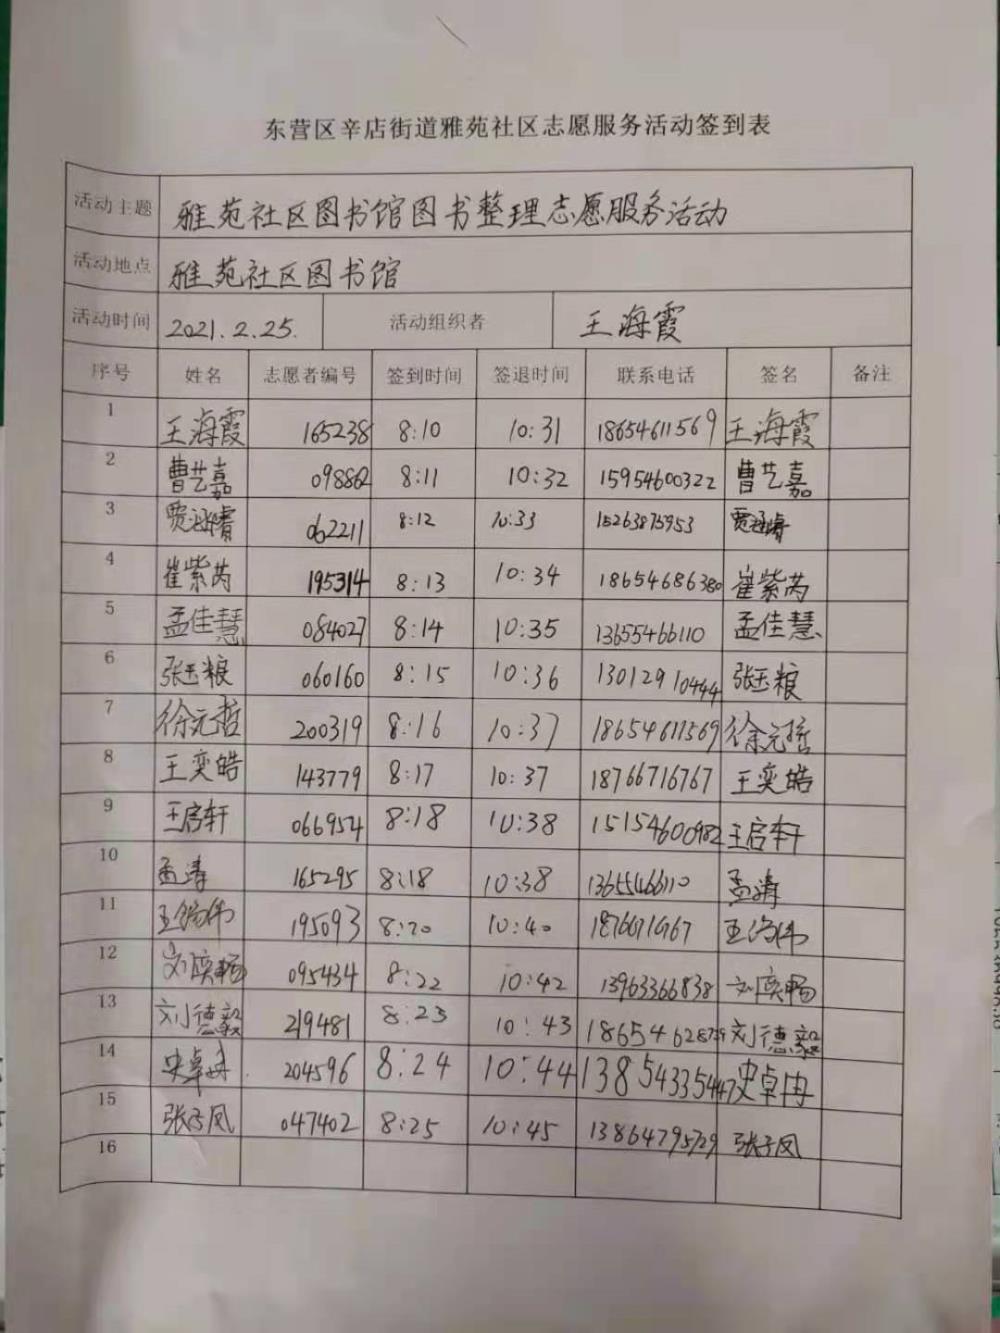 东营区辛店街道雅苑社区志愿服务活动签到表
活动主题 雅苑社区图书馆图书整理志愿服务活动
活动地点 雅苑社区图书馆
活动时间 2021.2.25. 活动组织者 王海霞
序号 姓名 志愿者编号 签到时间 签退时间 联系电话 签名 备注
1 王海霞 165238 8:10 10:31 18654611569 王海霞
2 曹艺嘉 098862 8:11 10:32 15954600322 曹艺嘉
3 贾涵睿 062211 8:12 10:33 15263875953 贾涵睿
4 崔紫芮 195314 8:13 10:34 18654686380 崔紫芮
5 孟佳慧 084027 8:14 10:35 13655466110 孟佳慧
6 张玉粮 060160 8:15 10:36 13012910444 张玉粮
7 徐元哲 200319 8:16 10:37 18654611569 徐元哲
8 王奕皓 143779 8:17 10:37 18766716767 王奕皓
9 王启轩 066954 8:18 10:38 15154600982 王启轩
10 孟涛 165295 8:18 10:38 13655466110 孟涛
11 195093 8:20 10:40
12 刘奕畅 095434 8:22 10:42 13963366838 刘奕畅
13 刘德毅 219481 8:23 10:43 刘德毅
14 史卓冉 204596 8:24 10:44 13854335447 史卓冉
15 张子凤 047402 8:25 10:45 13864795729 张子凤
16